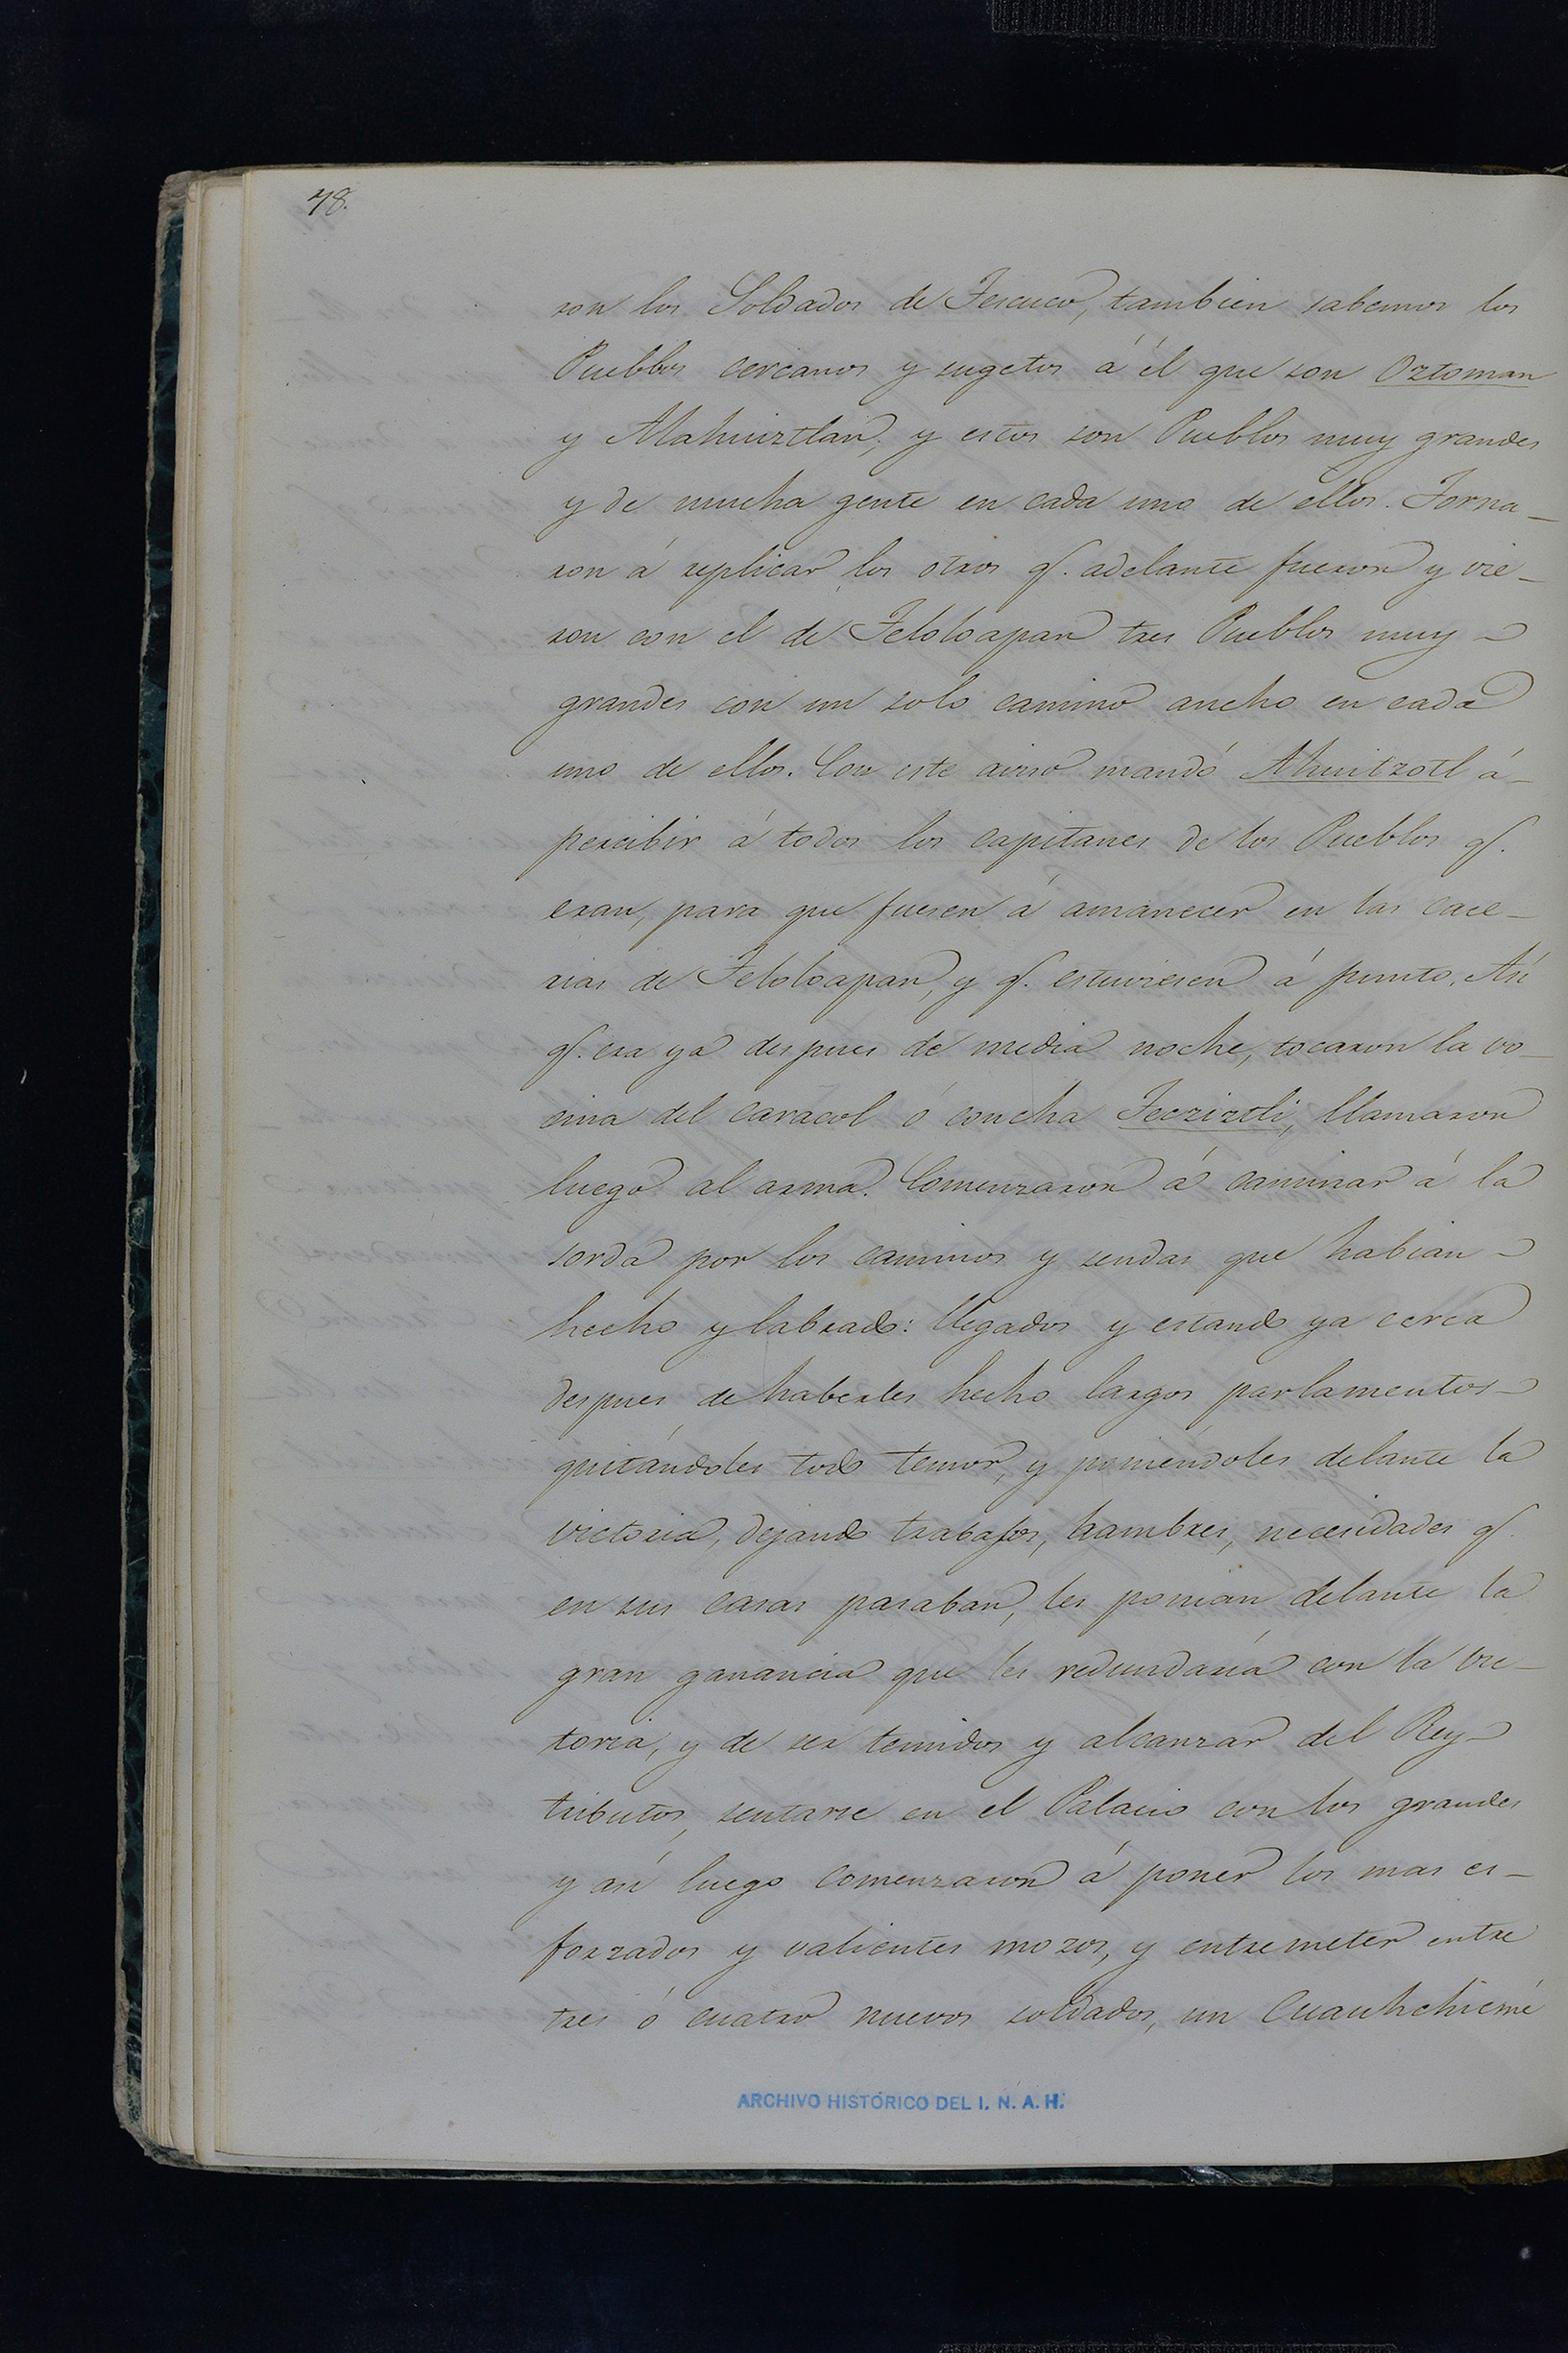 48.
ron los Soldados de Tescuco, tambien sabemos los
Pueblos cercanos y sugetos á él que son Oztoman
y Alahuiztlan; y estos son Pueblos muy grandes
y de mucha gente en cada uno de ellos. Torna-
ron á replicar los otros q̃. adelante fueron y vie-
ron con el de Teloloapan tres Pueblos muy -
grandes con un solo camino ancho en cada
uno de ellos. Con este aviso mandó Ahuitzotl á-
percibir á todos los capitanes de los Pueblos q̃.
eran, para que fuesen á amanecer en las cace-
rias de Teloloapan, y q̃. estuviesen á punto. Así
q̃. era ya despues de media noche, tocaron la vo-
cina del caracol ó concha Tecziztli, llamaron
luego al arma. Comenzaron á caminar á la
sorda por los caminos y sendas que habian -
hecho y labrado: llegados y estando ya cerca
despues de haberles hecho largos parlamentos -
quitándoles todo temor, y poniéndoles delante la
victoria, dejando trabajos, hambres, necesidades q̃.
en sus casas pasaban, les ponian delante la
gran ganancia que les redundaría con la vic-
toria, y de ser temidos y alcanzar del Rey -
tributos, sentarse en el Palacio con los grandes
y así luego comenzaron á poner los mas es-
forzados y valientes mozos, y entremeter entre
tres ó cuatro nuevos soldados, un Cuauhchicmé
ARCHIVO HISTÓRICO DEL I. N. A. H.